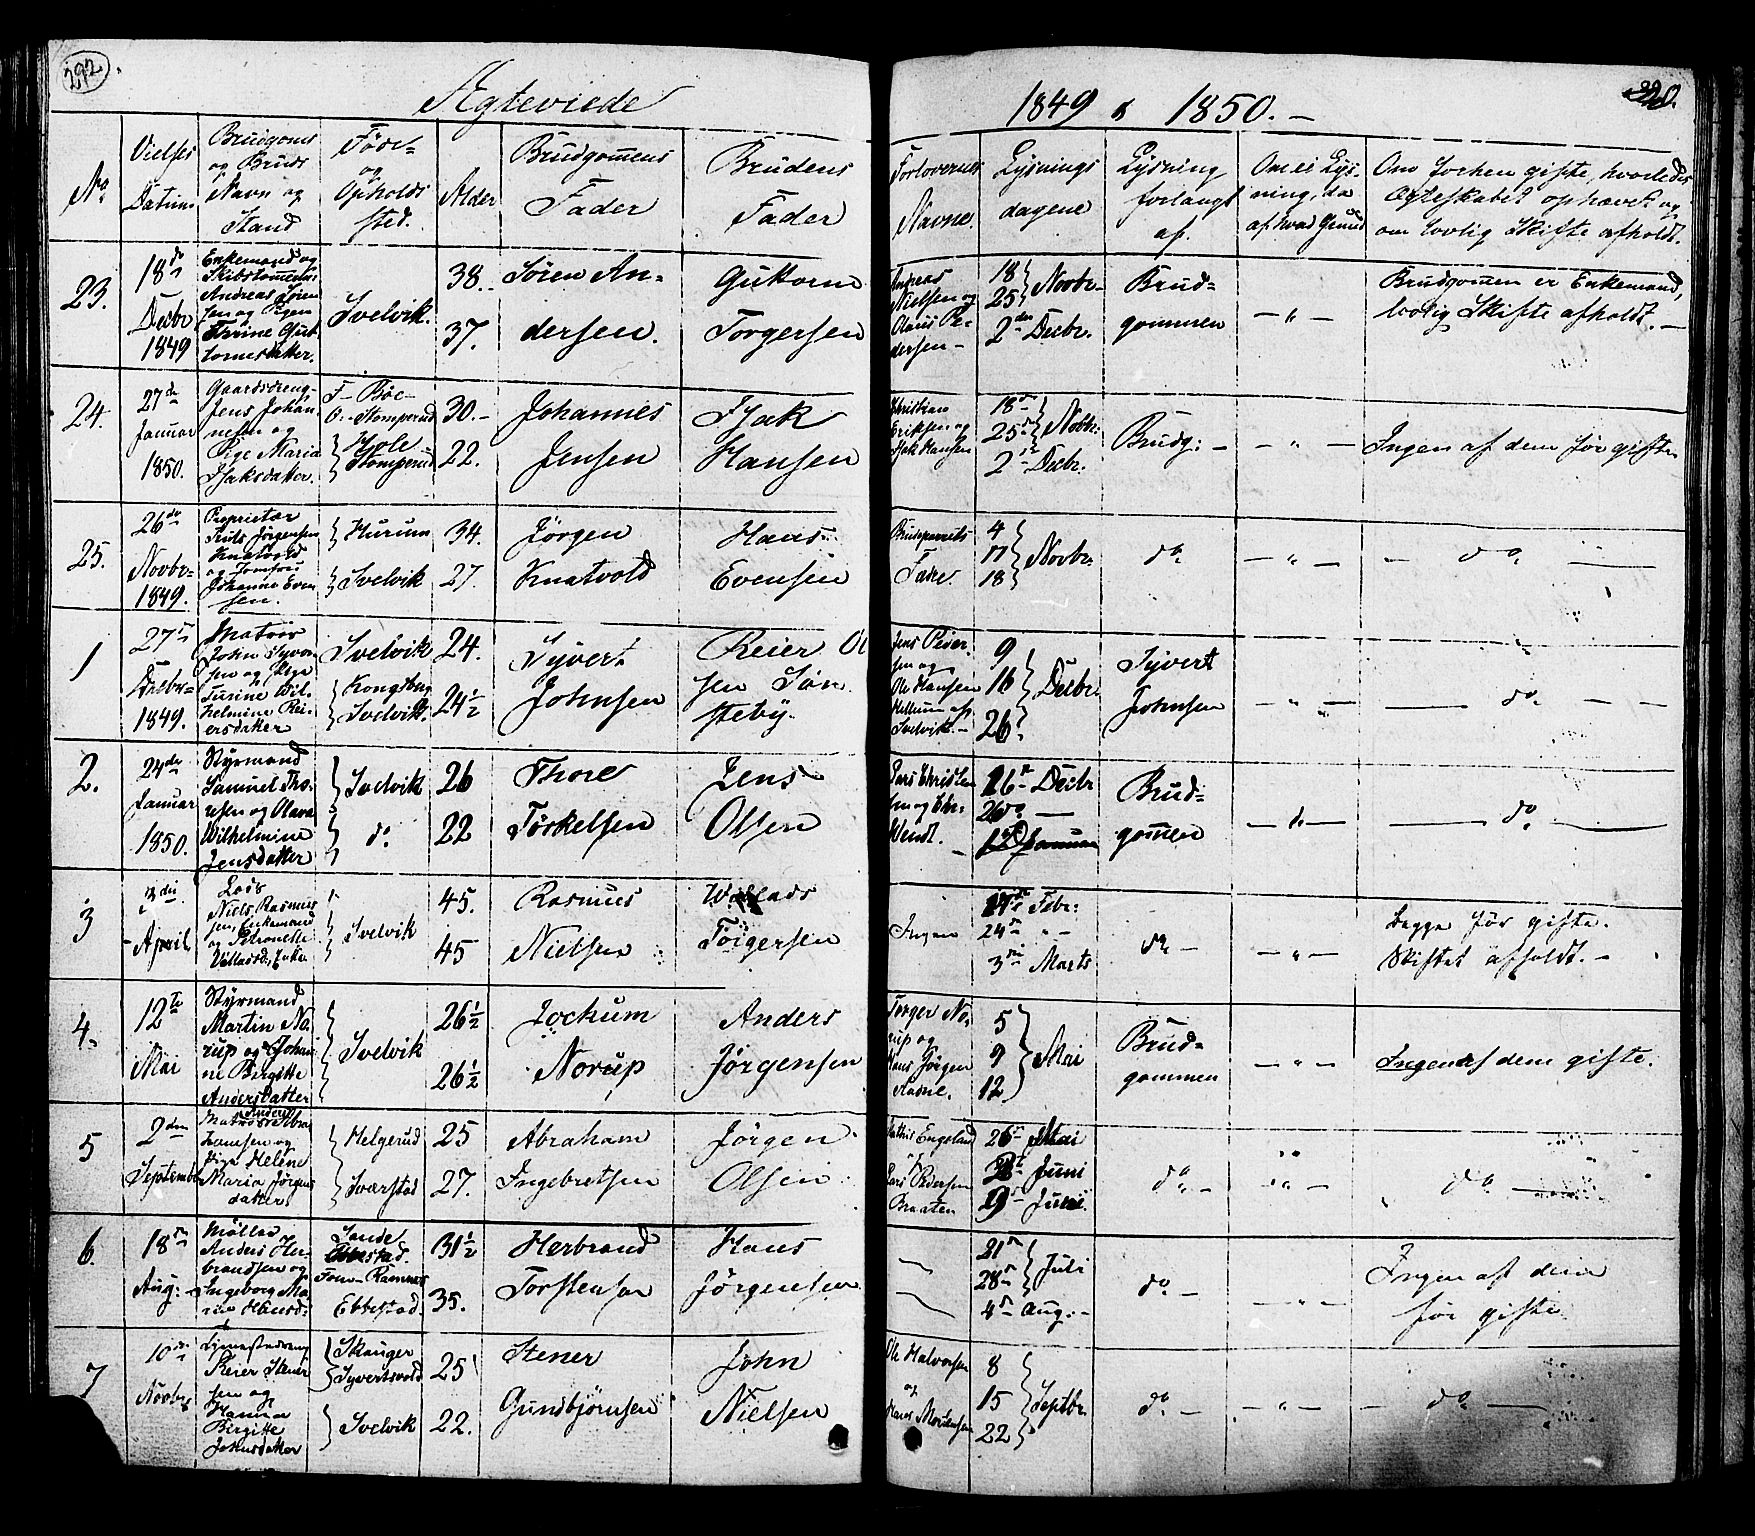 292.
Ægteviede
1849 & 1850.
No
Vielses Datum
Brudgoms og Bruds Navn og Stand
Føde- og Opholds sted.
Alder
Brudgommens Fader
Brudens Fader
Forlovernes Navne.
Lysnings dagene
Lysning forlangt af.
Om ei Lys- ning, da af hvad Grund
Om Forhen gifte, hvorledes Ægteskabet ophævet og om lovlig Skifte afholdt.
23.
18de Decbr 1849
Enkemand og
Andreas Søren
sen og Pigen
Thrine Gut
tormsdatter.
Svelvik.
38.
37.
Søren An-
dersen.
Guttorm
Torgersen
Andreas
Nielsen og
Olaus Pe-
dersen
18
25 Novbr
2den Decbr.
Brud-
gommen
— " —
Brudgommen er Enkemand,
lovlig Skifte afholdt. —
24.
27de
Januar
1850.
Gaardsdreng
Jens Johan
nesen og
Pige Maria
Isaksdatter.
F- Böe-
O.- Stomperud
Hole
Stomperud
30.-
22.
Johannes
Jensen
Isak
Hansen
Christian
Eriksen og
Isak Hansen
18de
25de Novbr:
2den Decbr.
Brudg: -
— " —
Ingen af dem før gifte
25.
26de
Novbr
1849.
Proprietær
Jørgensen
Knatvold
og Jomfrue
Johanne Even
sen.
Hurum
Svelvik
34.
27.
Jørgen
Knatvold
Hans
Evensen
Brudeparrets
Fædre.
4
11 Novbr.
18
do
— " —
— do —
1
27de
Decbr
1849.
Matros
John Syver
sen og Pige
Terine Wil-
helmine Rei-
ersdatter
Svelvik
Kongsberg
Svelvik.
24.
24½
Syvert
Johnsen
Reier Ol
sen Søn
steby.
Jens Peder-
sen og
Ole Hansen
Hellum af
Svelvik.-
9
16 Decbr.
26
Syvert
Johnsen
— " —
— do —
2.
24de
Januar
1850.
Styrmand
Samuel Tho-
resen og Olava
Wilhelmine
Jensdatter
Svelvik
do
26
22
Thore
Torkelsen
Jens
Olsen
Lars Christen
sen og Chr.
Wendt.
16de Decbr
26 do —
Januar
Brud-
gommen
— " —
— do —
3
3die
April
Lods
Niels Rasmus
sen, Enkemand
og Petronelle
Svelvik
45.
45
Rasmus
Nielsen
Torgersen
Ingen
17de Febr:
24de " -
3die Marts
do -
— " —
Begge før gifte.
Skiftet afholdt. -
4.
12te
Mai
Styrmand
Martin No-
rup og Johan
ne Birgitte
Andersdatter
Svelvik
26½
26½
Jochum
Norup
Anders
Jørgensen
Torger No-
rup og
Hans Jørgen
5
9 Mai
12
Brud-
gommen
— " —
Ingen af dem gifte.
5
2den
September
Matros
Anders
Abra
hamsen og
Pige Helene
Maria Jørgens
datter
Helgerud
Sværstad
25
27.
Abraham
Ingebretsen
Jørgen
Olsen
Engeland
og
Lars Pedersen
Braaten
26de Mai
Juni
Juni
do -
" -
do —
6.
18de
Aug:
Møller
Anders Her-
brandsen og
Ingeborg Ma
rie Hansd:
Sande
Ramnes
Ebbestad
31½
35.
Herbrand
Torstensen
Hans
Jørgensen
21de
28de Juli
4de Aug:-
do -
— " —
Ingen af dem
før gifte.
7
10de
Novbr
Reier Stener
sen og
Hanna
Birgitte
Johnsdatter
Skauger
Syvertsvold
Svelvik
25
22.
Stener
Gundbjörnsen
John
Nielsen
Ole Halvorsen
og
Hans Mortensen
8
15 Septbr.
22
do -
— " —
— do —